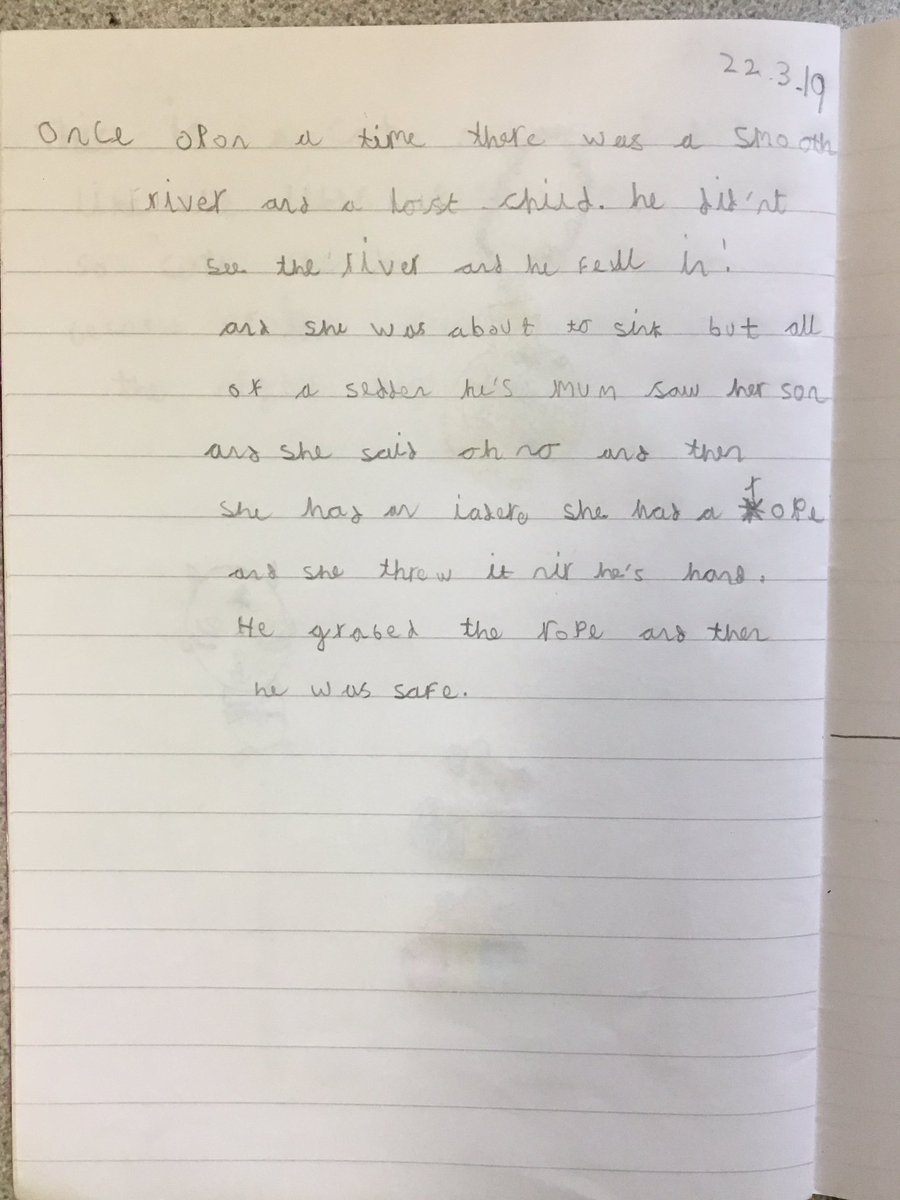 22.3.19
Once opon a time there was a smooth
river and a lost child. he did'nt
see the river and he fell in!
and she was about to sink but all
of a sedden he's mum saw her son
and she said oh no and then
she had an iadere she had a rope
and she threw it nir he's hand.
He grabed the rope and then
he was safe.